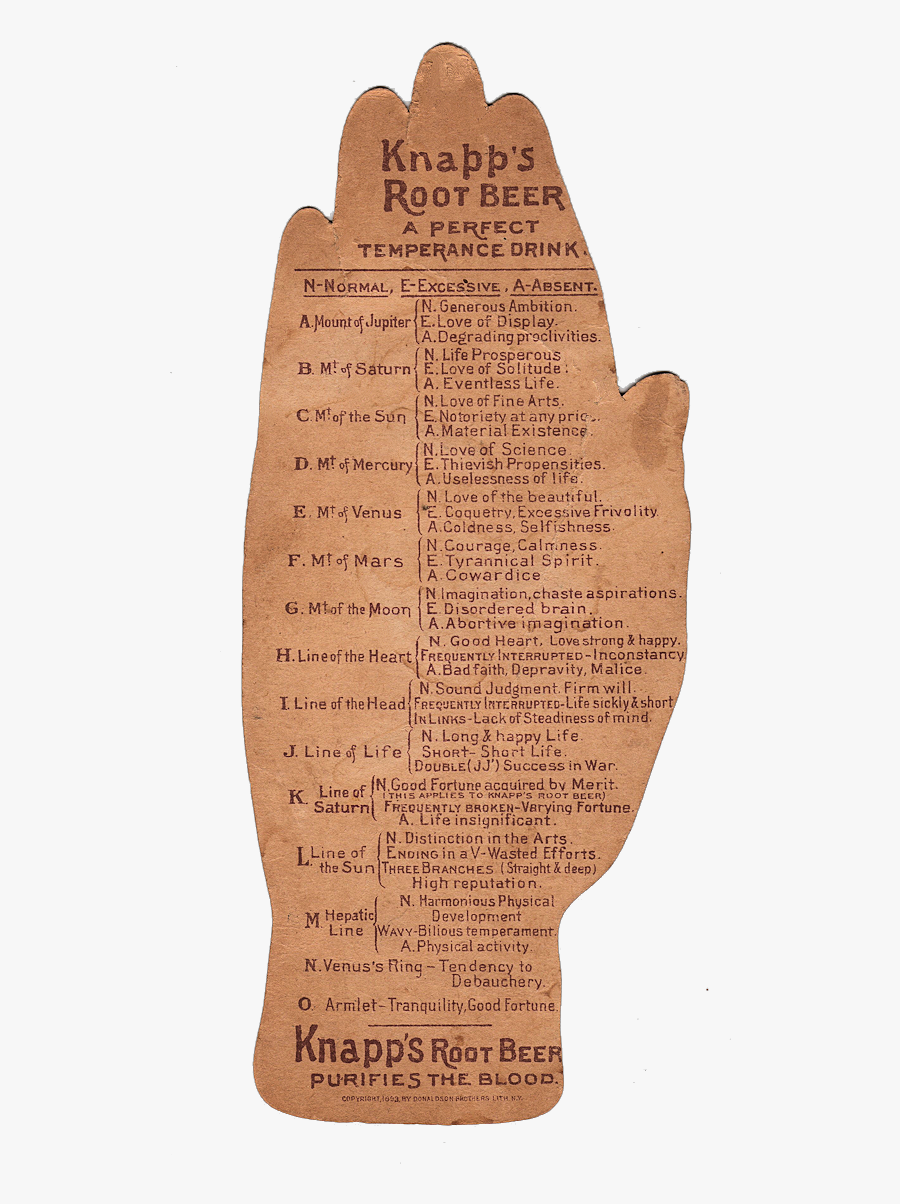 Knapp's
ROOT BEER
A PERFECT
TEMPERANCE DRINK.
N-NORMAL, E-EXCESSIVE, A-ABSENT.
A. Mount of Jupiter
N. Generous Ambition.
E. Love of Display.
A. Degrading proclivities.
B. Mt. of Saturn
N. Life Prosperous
E. Love of Solitude.
A. Eventless Life.
C. Mt. of the Sun
N. Love of Fine Arts.
E. Notoriety at any price.
A. Material Existence.
D. Mt. of Mercury
N. Love of Science.
E. Thievish Propensities.
A. Uselessness of life.
E. Mt. of Venus
N. Love of the beautiful.
E. Coquetry, Excessive Frivolity.
A. Coldness, Selfishness.
F. Mt. of Mars
N. Courage, Calmness.
E. Tyrannical Spirit.
A. Cowardice
G. Mt. of the Moon
N. Imagination, chaste aspirations.
E. Disordered brain.
A. Abortive imagination.
H. Line of the Heart
N. Good Heart, Love strong & happy.
FREQUENTLY INTERRUPTED-Inconstancy
A. Bad faith, Depravity, Malice.
I. Line of the Head
N. Sound Judgment. Firm will.
FREQUENTLY INTERRUPTED-Life sickly & short
IN LINKS-Lack of Steadiness of mind.
J. Line of Life
N. Long & happy Life.
SHORT-Short Life.
DOUBLE (JJ') Success in War.
K. Line of
Saturn
N. Good Fortune acquired by Merit.
(THIS APPLIES TO KNAPP'S ROOT BEER)
FREQUENTLY BROKEN-Varying Fortune.
A. Life insignificant.
L. Line of
the Sun
N. Distinction in the Arts.
ENDING in a V-Wasted Efforts.
THREE BRANCHES (Straight & deep)
High reputation.
M. Hepatic
Line
N. Harmonious Physical
Development
WAVY-Bilious temperament.
A. Physical activity.
N. Venus's Ring-Tendency to
Debauchery.
O. Armlet-Tranquility, Good Fortune.
Knapp's ROOT BEER
PURIFIES THE BLOOD.
COPYRIGHT, 1893, BY DONALDSON BROTHERS LITH. N.Y.